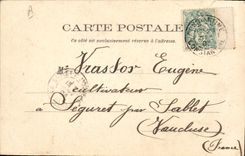 B
CARTE POSTALE
Ce côté est exclusivement réservé à l'adresse.
Monsieur Krassor Eugène
cultivateur
à Séguret par Sablet
Vaucluse
(France)